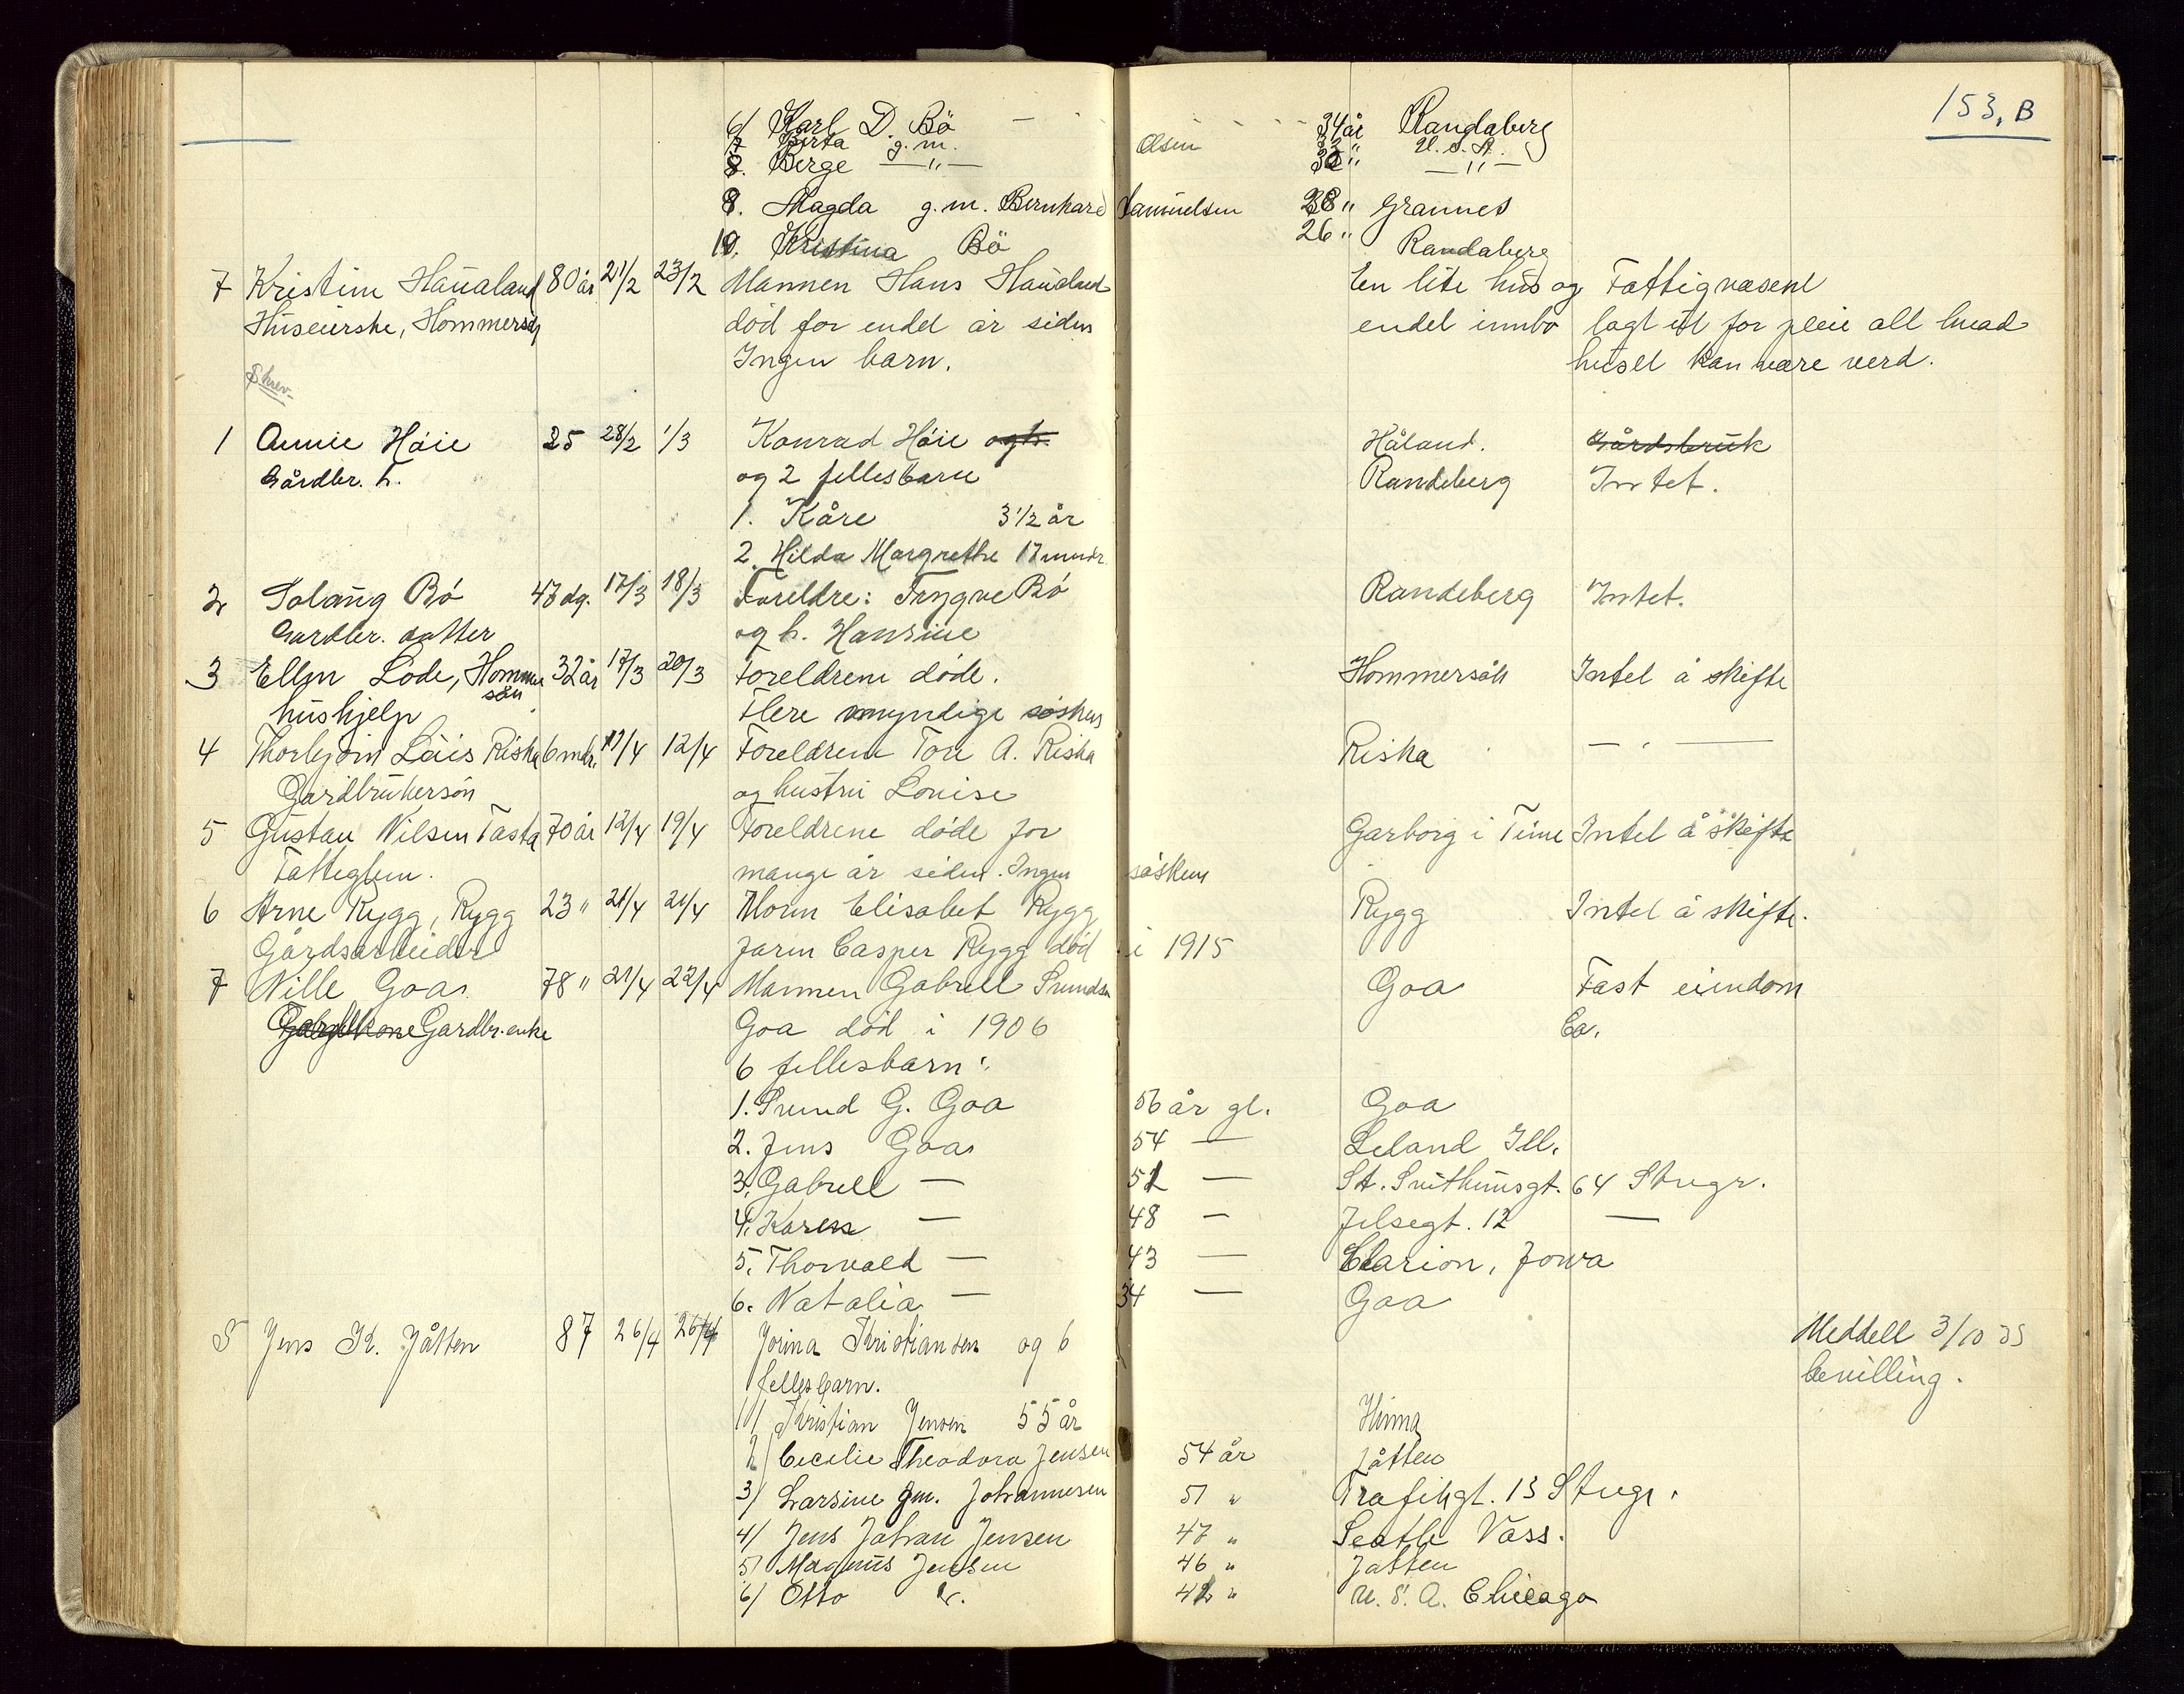 153, B
6/ Karl D. Bö — 34 år Randaberg
7 Berta g. m. Olsen 32 " U. S. A.
8. Berge — " — 30 " — " —
9. Magda g. m. Bernhard Samuelsen 28 " Grannes
10. Kristina Bö 26 " Randaberg
7 Kristine Haualand 80 år 21/2 23/2 Mannen Hans Haualand En lite hus og Fattigvæsent
Huseierske, Hommersåk död for endel år siden endel innbo lagt ut for pleie alt hvad
Ingen barn. huset kan være verd.
Skrev
1 Annie Höie 25 28/2 1/3 Konrad Höie og h. Håland. Gårdsbruk
Gårdbr. h. og 2 fellesbarn Randeberg Intet.
1. Kåre 3 1/2 år
2. Hilda Margrethe 17 mndr
2 Solaug Bö 47 dg. 17/3 18/3 Foreldre: Trygve Bö Randeberg Intet.
Gardbr. datter og h. Hansine
3 Ellen Lode, Hommersåk 32 år 17/3 20/3 Foreldrene döde. Hommersåk Intet å skifte
hushjelp Flere myndige sösken
4 Thorbjörn Låis Riska 6 mdr. 11/4 12/4 Foreldrene Tore A. Riska Riska — " —
Gardbrukersön og hustru Louise
5 Gustav Nilsen Tasta 70 år 12/4 19/4 Foreldrene döde for Garborg i Time Intet å skifte
Fatteglem. mange år siden. Ingen sösken
6 Arne Rygg, Rygg 23 " 21/4 21/4 Moren Elisabet Rygg Rygg Intet å skifte.
Gårdsarbeider faren Casper Rygg död i 1915
7 Nille Goa 78 " 21/4 22/4 Mannen Gabrell Svendsen Goa Fast eiendom
Gardbr. enke Goa död i 1906 Ca.
6 fellesbarn:
1. Svend G. Goa 56 år gl. Goa
2. Jens Goa 54 — Leland Ill.
3. Gabrell — 51 — St. Svithunsgt. 64 Stvgr.
4. Karen — 48 — Jelsegt. 12 —
5. Thorvald — 43 — Clarion, Jowa
6. Natalia — 34 — Goa
8 Jens K. Jåtten 87 26/4 26/4 Jorina Kristiansen og 6 Meddelt 3/10 35
fellesbarn. bevilling.
1/ Kristian Jensen 55 år Hinna
2/ Cecilie Theodora Jensen 54 år Jåtten
3/ Larsine gm. Johannesen 51 " Trafikgt. 13 Stvgr.
4/ Jens Johan Jensen 47 " Seatle Vass.
5/ Magnus Jensen 46 " Jåtten
6/ Otto 42 " U. S. A. Chicago